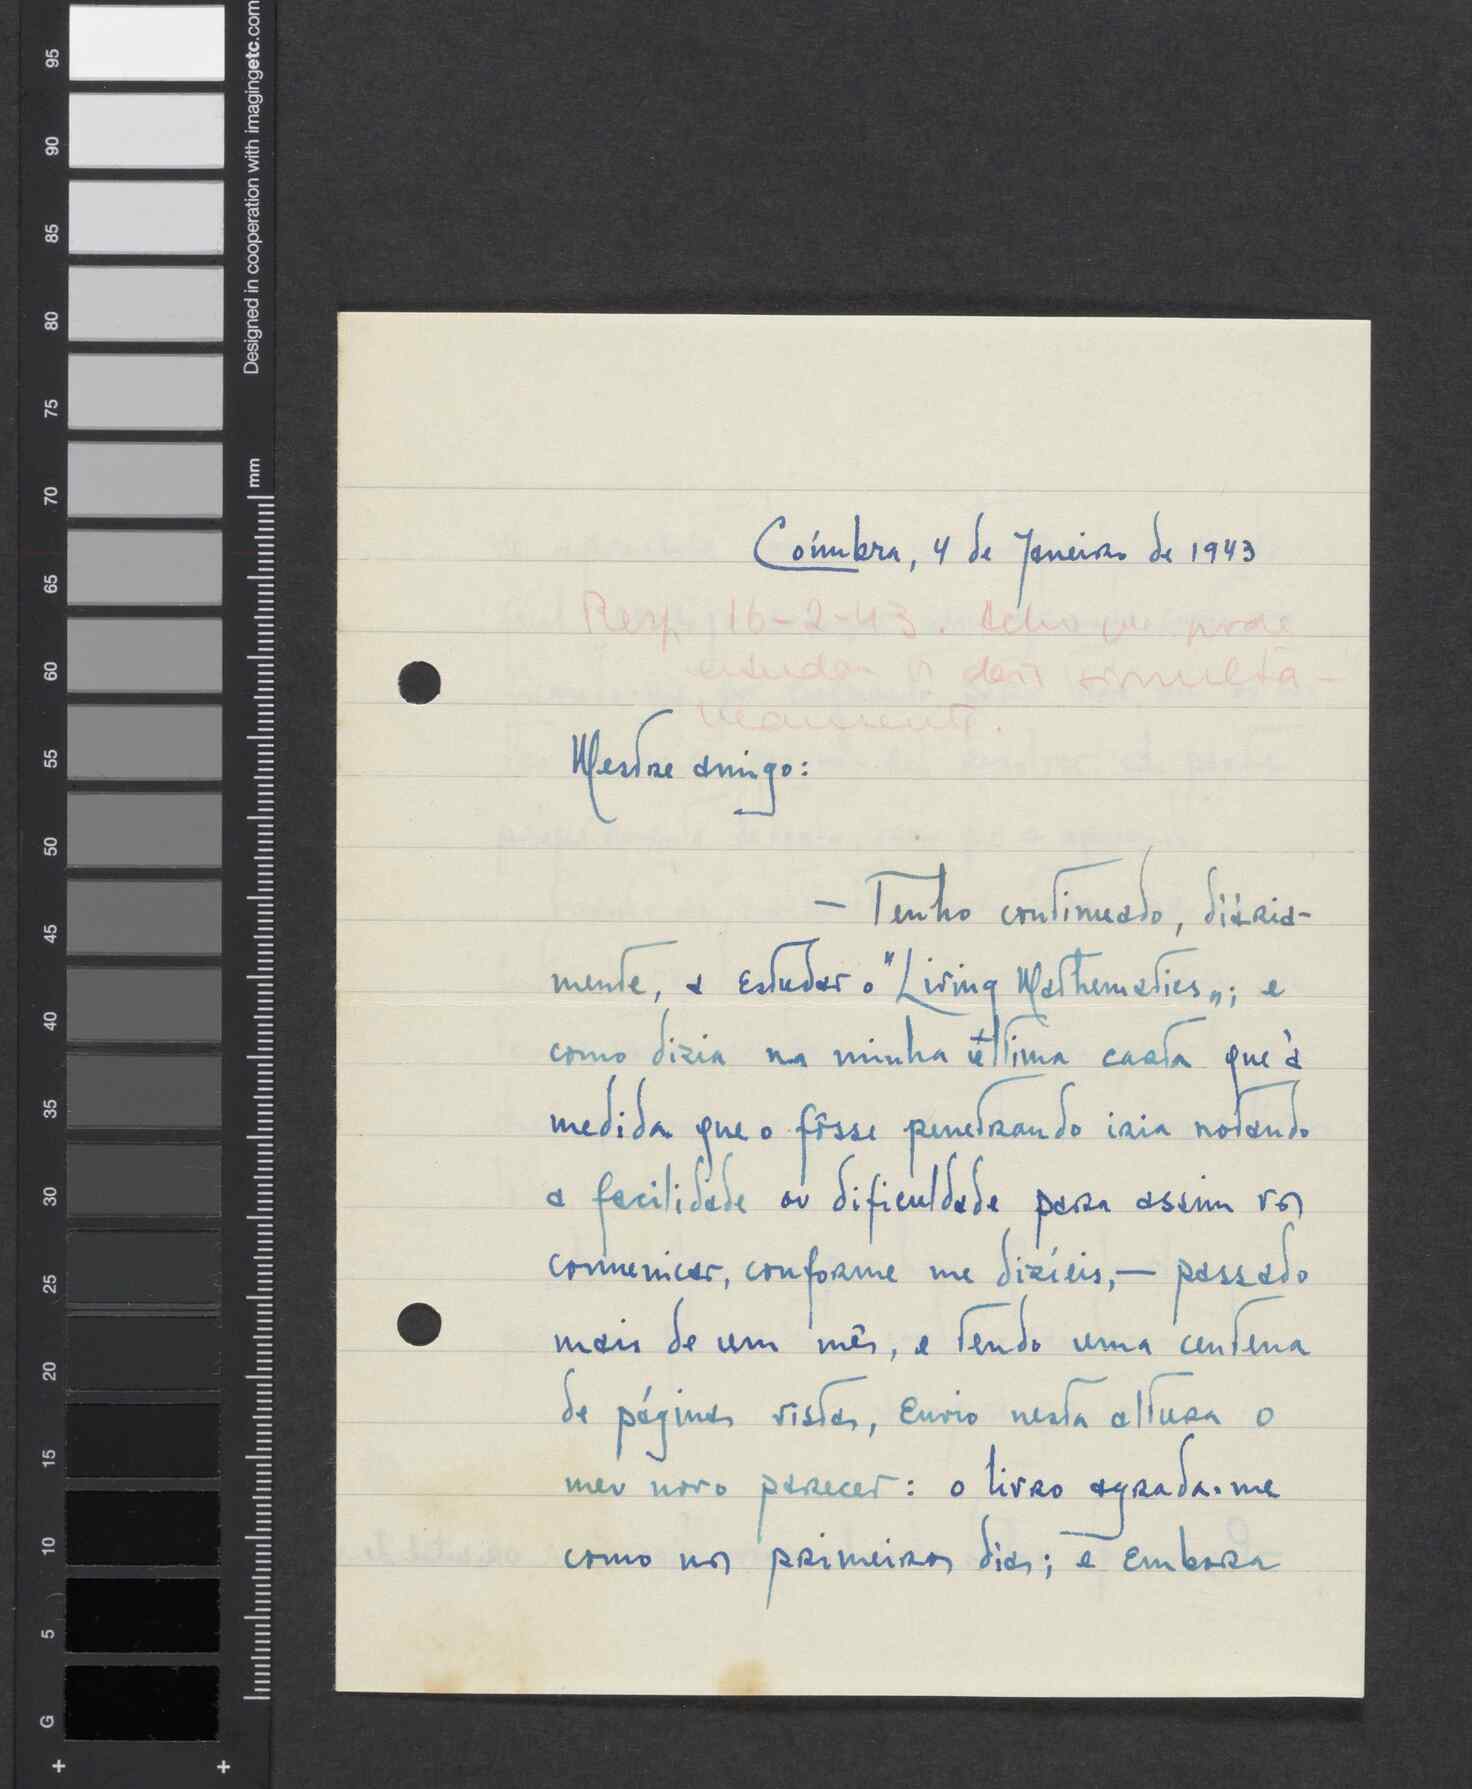 95
90
85
80
75
70
65
60
55
50
45
40
35
30
25
20
15
10
5
G
Designed in cooperation with imagingetc.com
mm
Coímbra, 4 de Janeiro de 1943
Resp. 16-2-43. Acho que pode
estudar os dois simultâ-
neamente.
Mestre amigo:
— Tenho continuado, diária-
mente, a estudar o "Living Mathematics„; e
como dizia na minha última carta que à
medida que o fôsse penetrando iria notando
a facilidade ou dificuldade para assim vos
comunicar, conforme me dizíeis, — passado
mais de um mês, e tendo uma centena
de páginas vistas, envio nesta altura o
meu novo parecer: o livro agrada-me
como nos primeiros dias; e embora